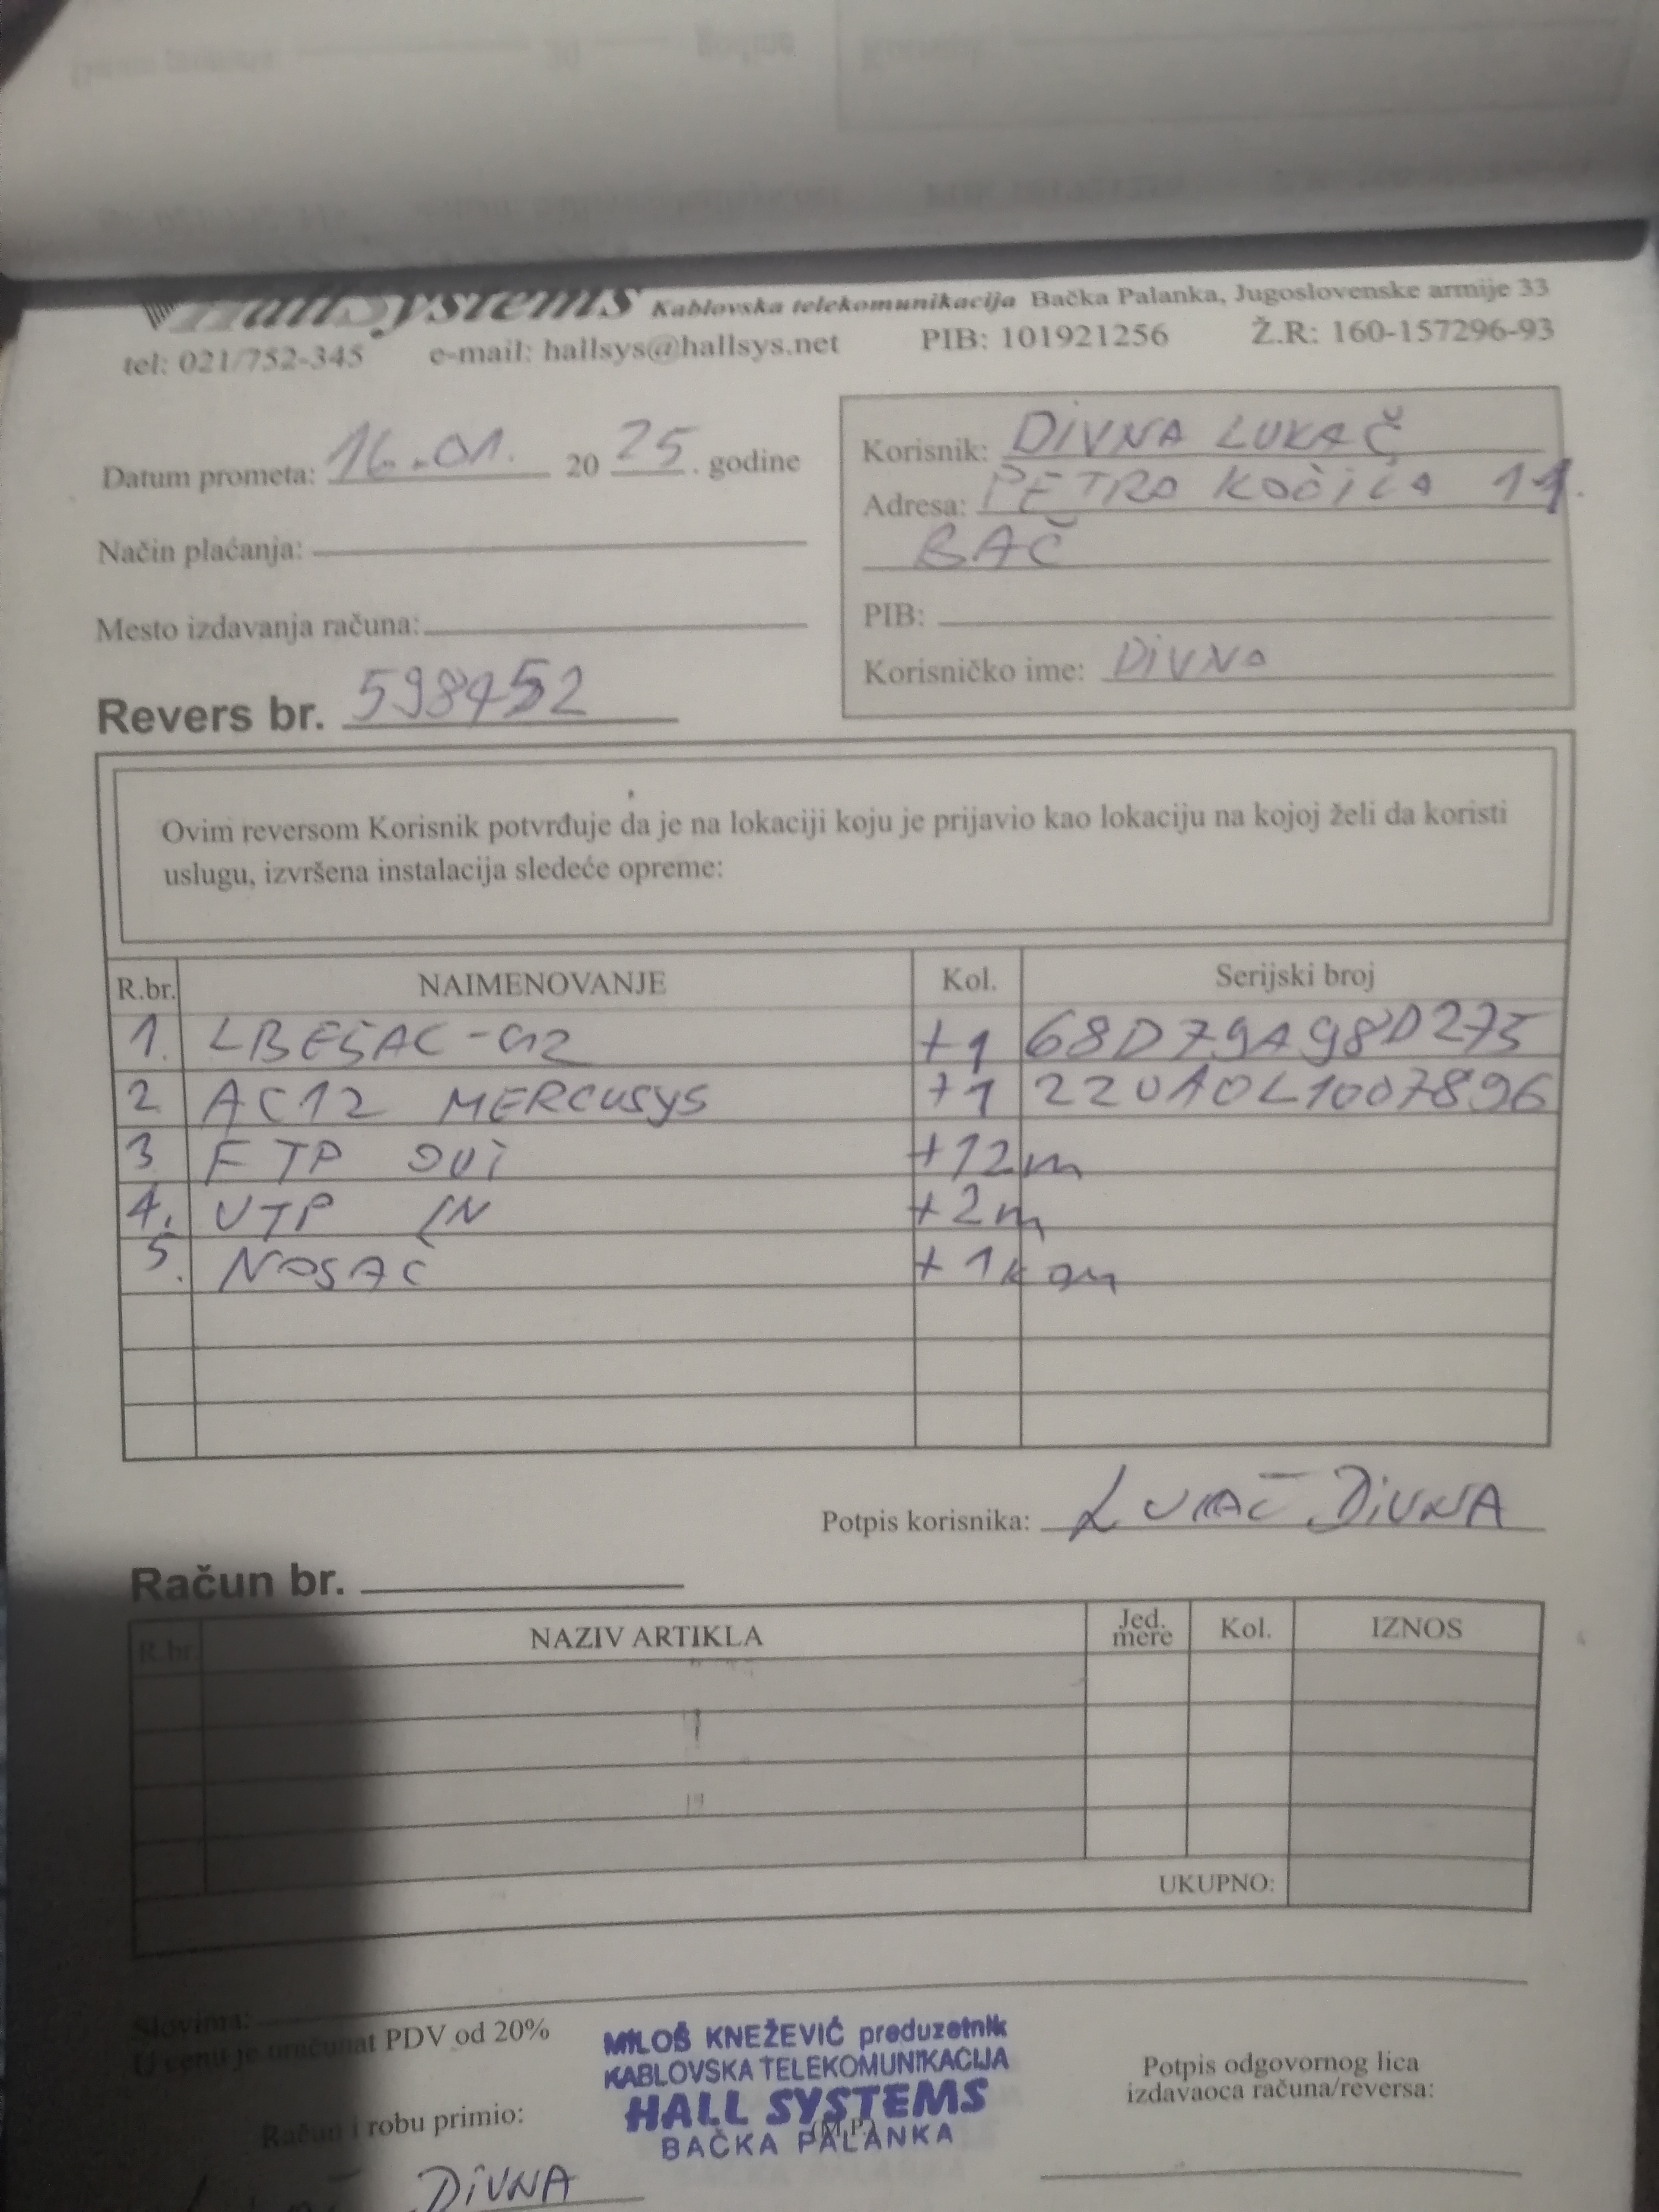 HallSystems Kablovska telekomunikacija Bačka Palanka, Jugoslovenske armije 33
tel: 021/752-345 e-mail: hallsys@hallsys.net PIB: 101921256 Ž.R: 160-157296-93
Datum prometa: 16.01. 2025. godine
Način plaćanja:
Mesto izdavanja računa:
Korisnik: DIVNA LUKAČ
Adresa: PETRA KOČIĆA 11.
BAČ
PIB:
Korisničko ime: DIVNA
Revers br. 598452
Ovim reversom Korisnik potvrđuje da je na lokaciji koju je prijavio kao lokaciju na kojoj želi da koristi
uslugu, izvršena instalacija sledeće opreme:
R.br. NAIMENOVANJE Kol. Serijski broj
1. LBE5AC-G2 +1 68D79A98D275
2 AC12 MERCUSYS +1 22UA0L1007896
3 FTP OUT +12m
4. UTP IN +2m
5. NOSAČ +1kom
Potpis korisnika: LUKAČ DIVNA
Račun br.
R.br. NAZIV ARTIKLA Jed. mere Kol. IZNOS
UKUPNO:
Slovima:
U cenu je uračunat PDV od 20%
MILOŠ KNEŽEVIĆ preduzetnik
KABLOVSKA TELEKOMUNIKACIJA
HALL SYSTEMS
(M.P.)
BAČKA PALANKA
Potpis odgovornog lica
izdavaoca računa/reversa:
Račun i robu primio:
DIVNA